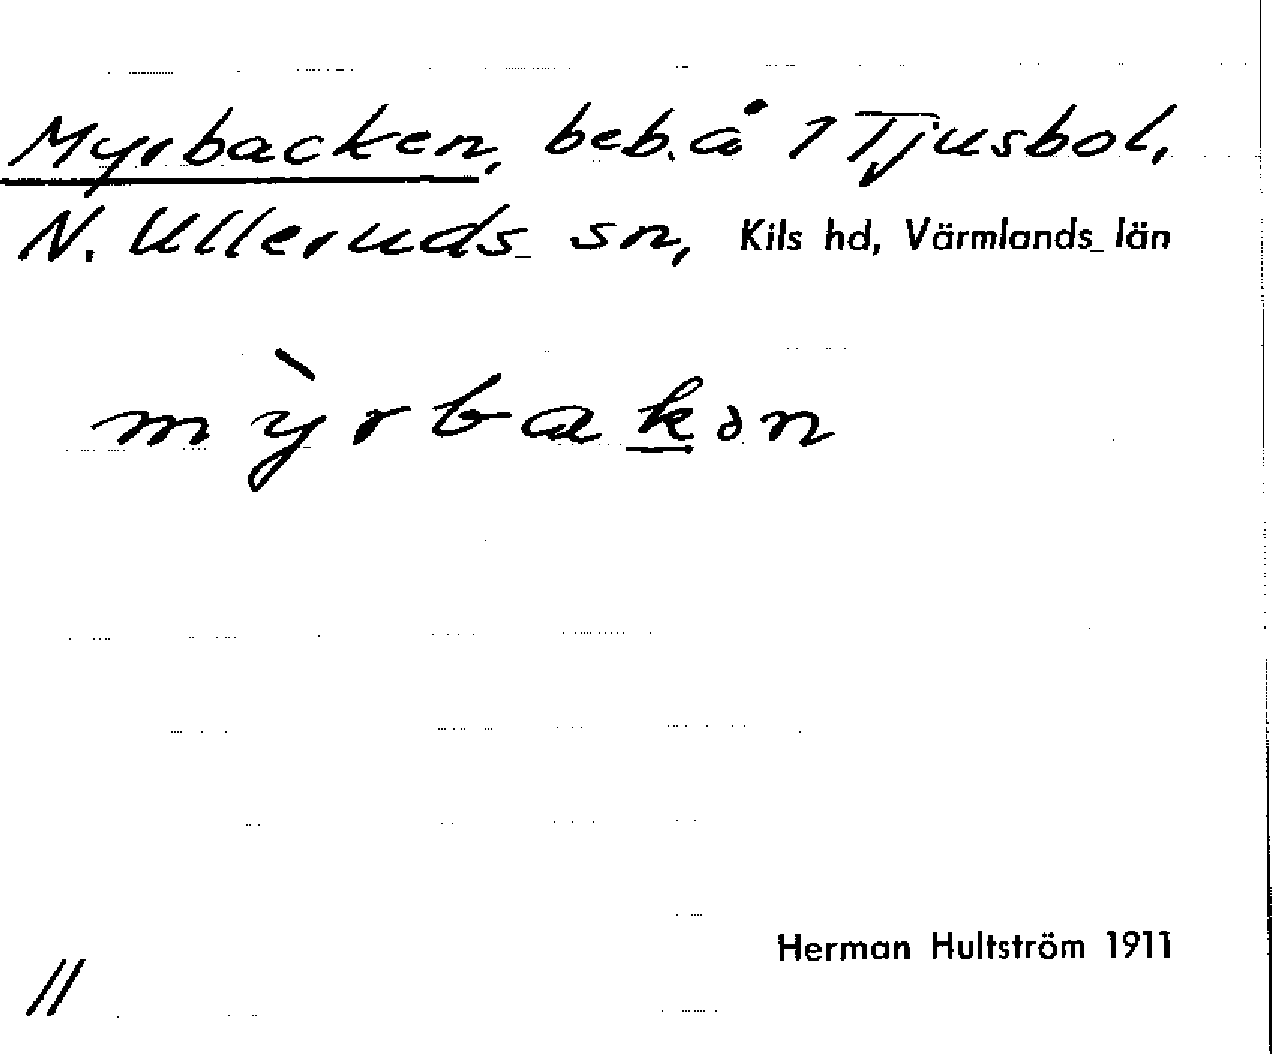 Myrbacken, beb. å 1 Tjusbol,
N. Ulleruds sn, Kils hd, Värmlands län
mỳrbakən
Herman Hultström 1911
//